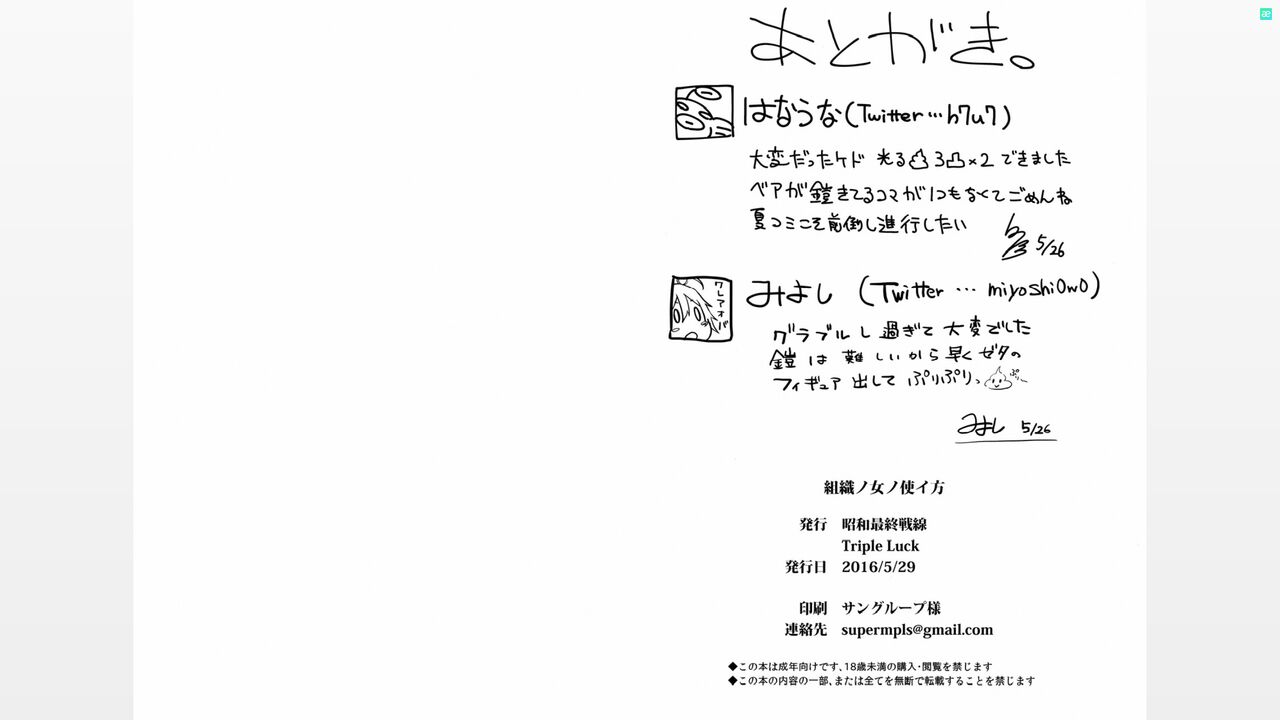 あとがき。
はならな(Twitter…h7u7)
大変だったケド 光る凸3凸×2 できました
ベアが鎧きてるコマが1つもなくてごめんね
夏コミこそ前倒し進行したい
5/26
クレアオバ
みよし (Twitter … miyoshi0w0)
グラブルし過ぎて大変でした
鎧は難しいから早くゼタの
フィギュア出して ぷりぷりっ
ぷりー
みよし 5/26
組織ノ女ノ使イ方
発行 昭和最終戦線
Triple Luck
発行日 2016/5/29
印刷 サングループ様
連絡先 supermpls@gmail.com
◆この本は成年向けです、18歳未満の購入・閲覧を禁じます
◆この本の内容の一部、または全てを無断で転載することを禁じます
æ